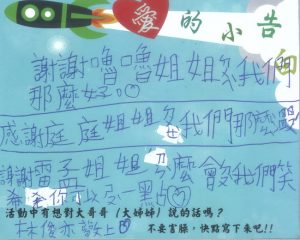 愛的小告白
謝謝嚕嚕姐姐為我們
那麼好
感謝庭庭姐姐為我們那麼
謝謝雷孟姐姐怎麼會我們笑
希你可以一點的
活動中有想對大哥哥（大姊姊）說的話嗎？
不要害臊，快點寫下來吧!!
林俊亦敬上